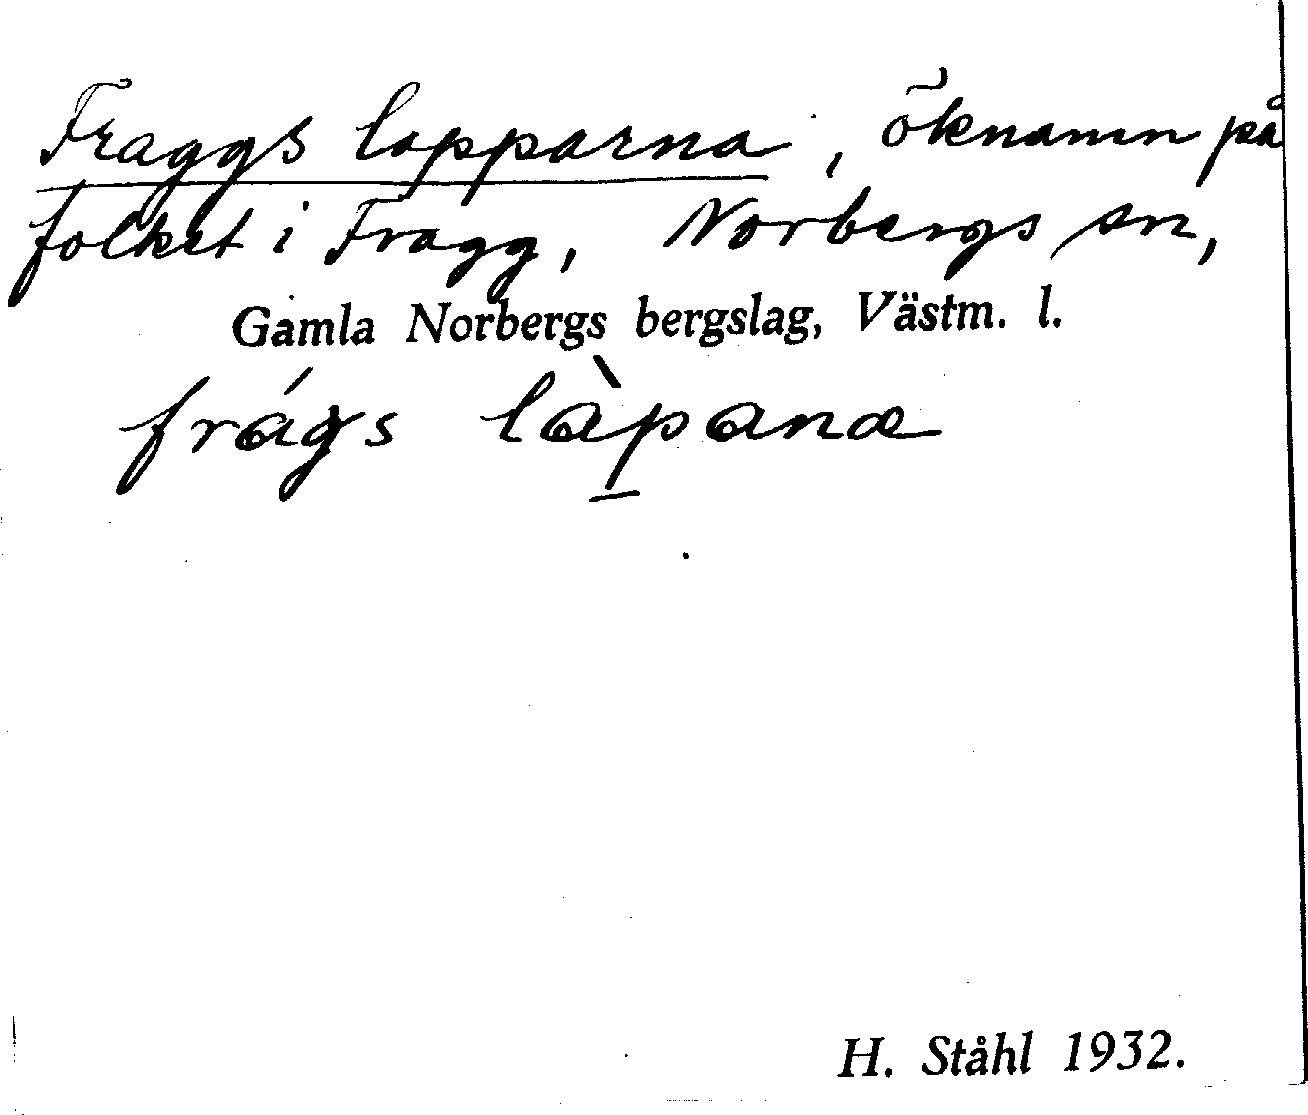 Fraggs lapparna, öknamn på
folket i Fragg, Norbergs sn,
Gamla Norbergs bergslag, Västm. l.
frágs làpanα
H. Ståhl 1932.